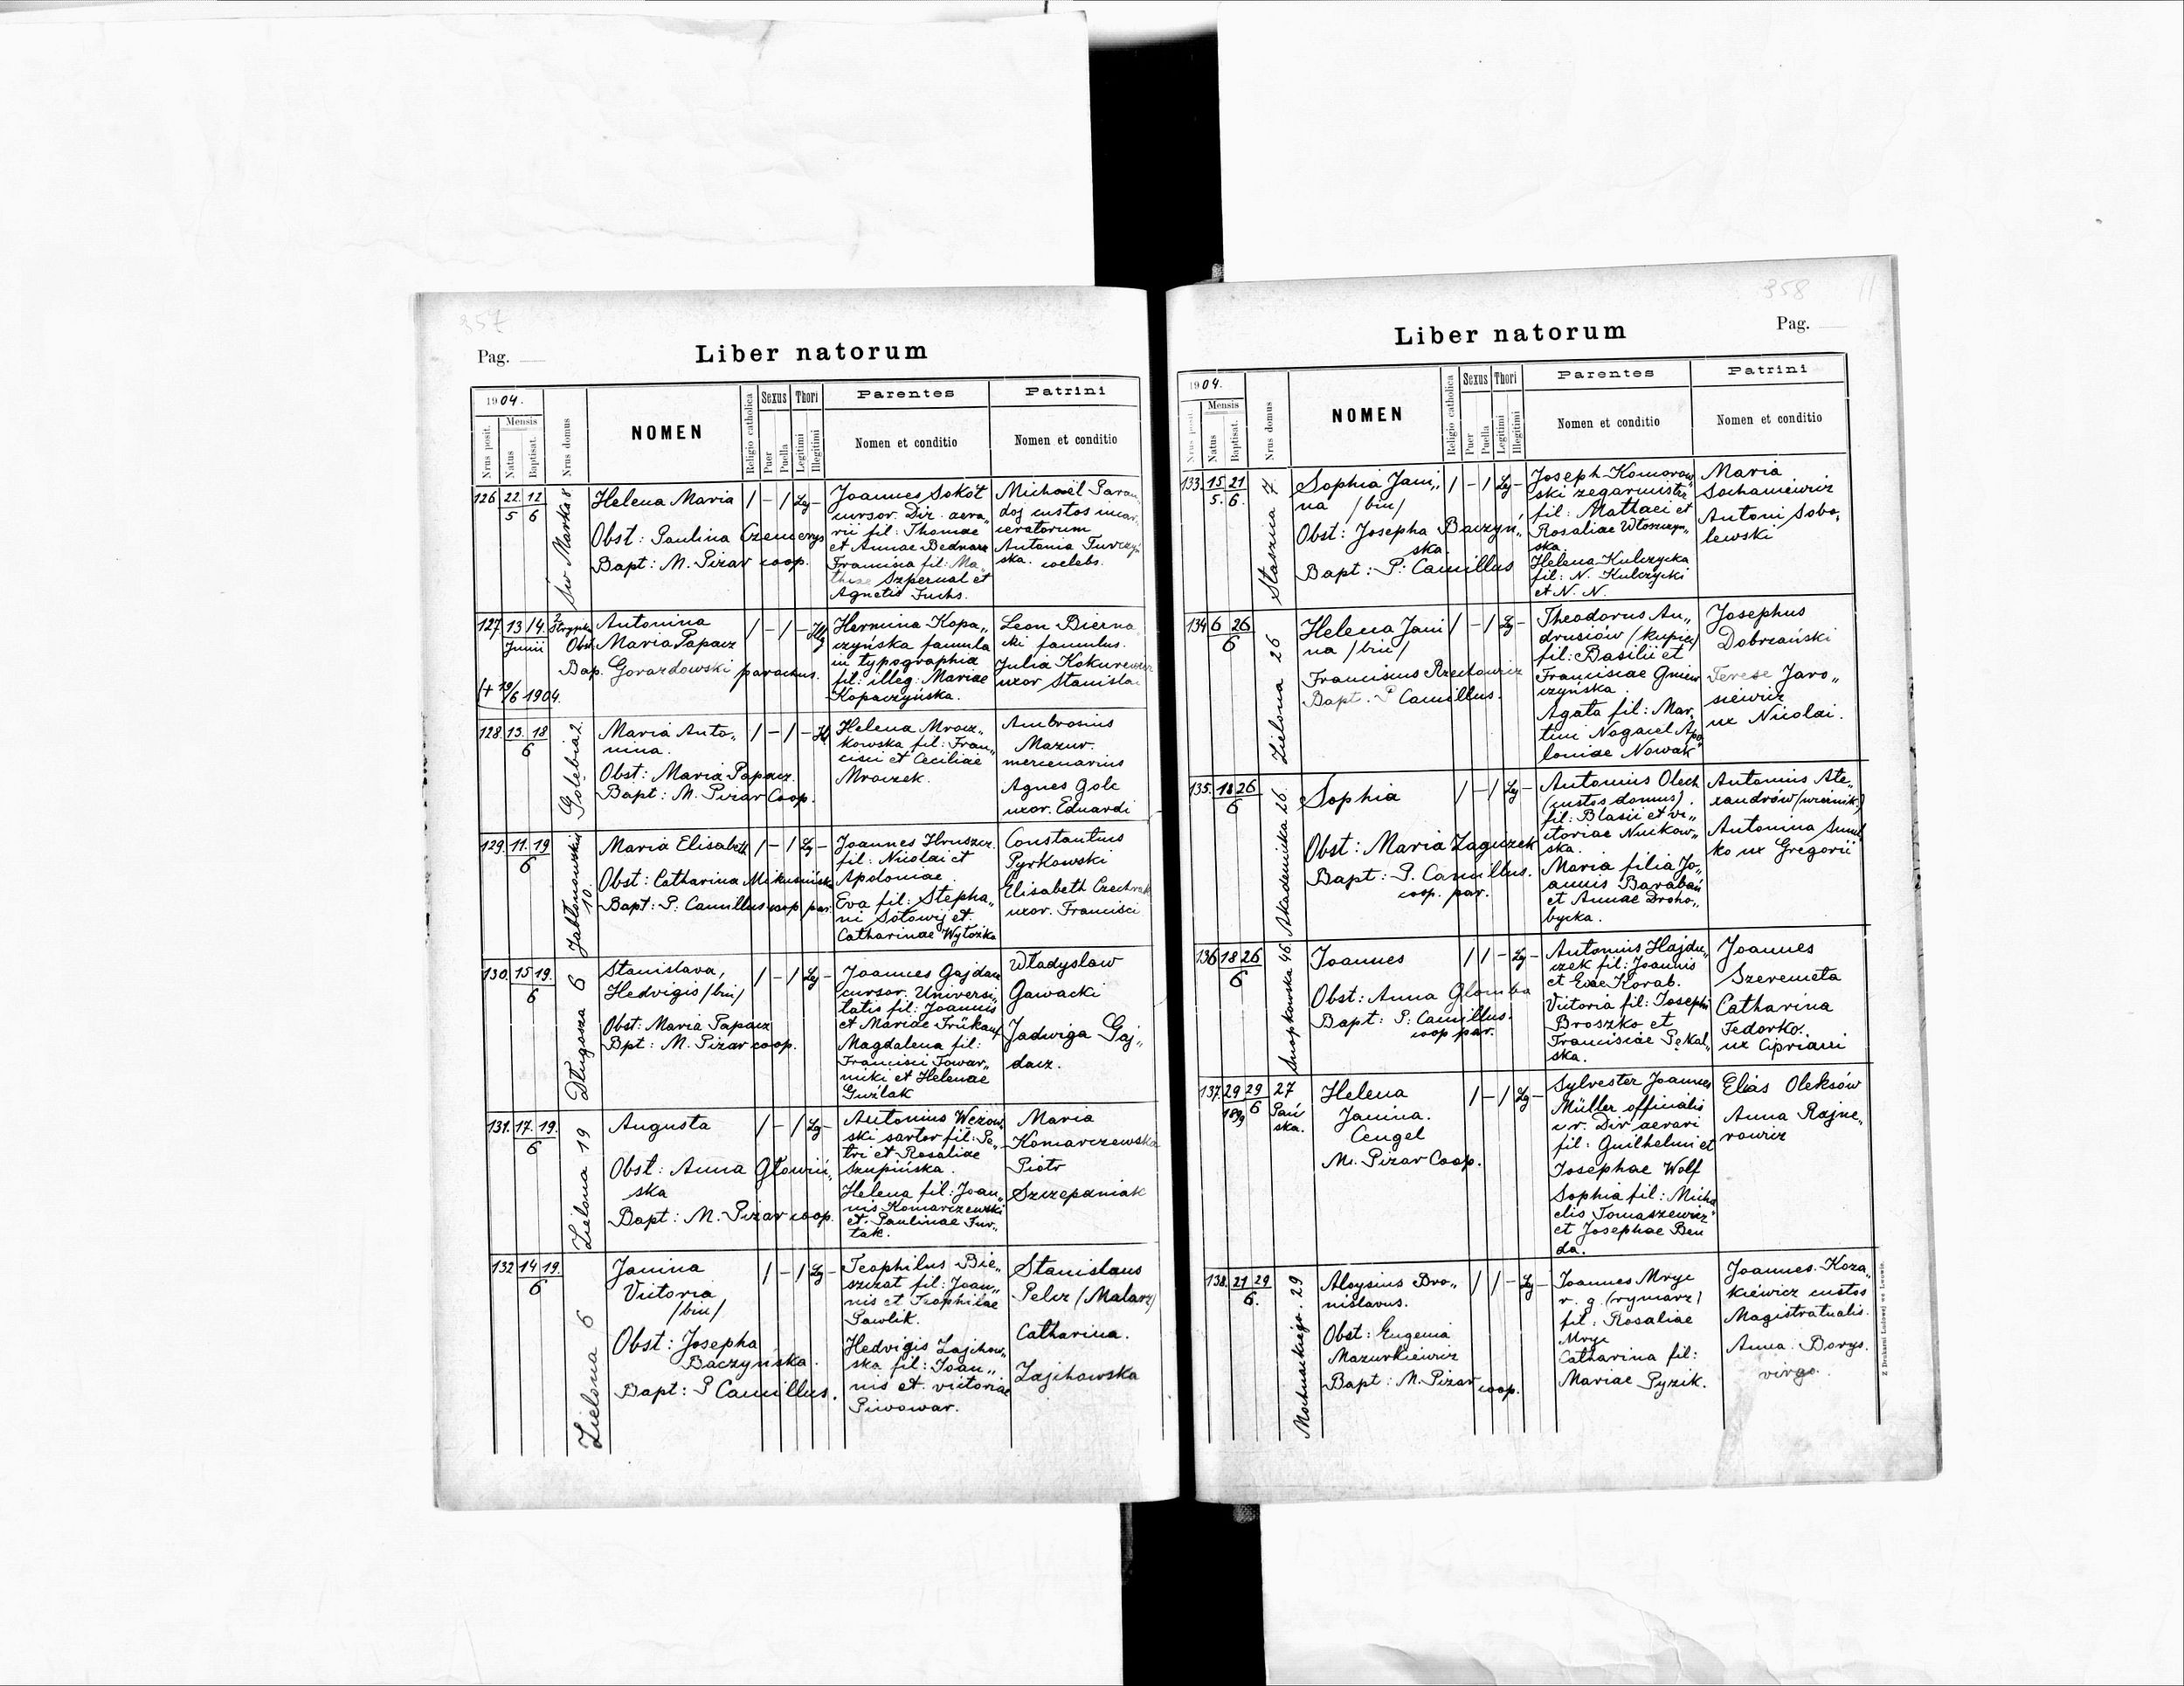 357
Pag.
Liber natorum
1904.
Mensis
Nrus posit.
Natus
Baptisat.
Nrus domus
NOMEN
Religio catholica
Sexus
Puer
Puella
Thori
Legitimi
Illegitimi
Parentes
Nomen et conditio
Patrini
Nomen et conditio
126 22/5 12/6
Św Marka 8
Helena Maria
Obst: Paulina
Bapt: M. Pizar coop.
/ – / Leg –
Joannes Sokół
cursor. Dir. aera„
rii fil: Thomae
et Annae Bednarz
Francisca fil: Ma„
thiae Szpernal et
Agnetis Fuchs.
Michaël
custos incar„
ceratorum
Antonia Turczyń
ska. coelebs.
127 13 14
Junii
(+ 19/6 1904.
2
Antonina
Obst. Maria Papacz
Bap. Gorazdowski parochus.
/ – / – Illg
Hermina Kopa„
czyńska famula
in typographia
fil: illeg: Mariae
Kopaczyńska.
Leon Bierna
cki famulus.
Julia Kokurewicz
uxor Stanislai
128. 13. 18
6
Gołębia 2.
Maria Anto„
nina.
Obst: Maria Papacz.
Bapt: M. Pizar Coop.
/ – / – Ill
Helena Mrocz„
kowska fil: Fran„
cisci et Ceciliae
Mroczek.
Ambrosius
Mazur.
mercenarius
Agnes Golc
uxor. Eduardi
129. 11. 19
6
Jabłonowskich
10.
Maria Elisabeth
Obst: Catharina Mikusińska
Bapt: P. Camillus coop par.
/ – / Leg –
Joannes Hruszcz.
fil: Nicolai et
Apoloniae.
Eva fil: Stepha„
ni Sołowij et
Catharinae Wytożka
Constantius
Pyrkowski
Elisabeth
uxor. Francisci
130. 15 19.
6
Długosza 6
Stanislava,
Hedvigis /bin/
Obst: Maria Papacz
Bpt: M. Pizar coop.
/ – / Leg –
Joannes Gajdacz
cursor. Universi„
tatis fil: Joannis
et Mariae Frükauf
Magdalena fil:
Francisci Towar„
nicki et Helenae
Guźlak
Władysław
Gawacki
Jadwiga Gaj„
dacz.
131. 17. 19.
6
Zielona 19
Augusta
Obst: Anna Głowiń„
ska
Bapt: M. Pizar coop.
/ – / Leg –
Antonius Wężow
ski sartor fil: Pe„
tri et Rosaliae
Szupińska.
Helena fil: Joan„
nis Komarczewski
et Paulinae Fur„
tak.
Maria
Komarczewska
Piotr
Szczepaniak
132 14 19.
6
Zielona 6
Janina
Victoria
/bin/
Obst: Josepha
Baczyńska.
Bapt: P Camillus.
/ – / Leg –
Teophilus Bie„
szczat fil: Joan„
nis et Teophilae
Pawlik.
Hedvigis Zajchow„
ska fil: Joan„
nis et victoriae
Piwowar.
Stanislaus
Pelcz /Malarz/
Catharina.
Zajchowska
358
Pag.
Liber natorum
1904.
Mensis
Nrus posit.
Natus
Baptisat.
Nrus domus
NOMEN
Religio catholica
Sexus
Puer
Puella
Thori
Legitimi
Illegitimi
Parentes
Nomen et conditio
Patrini
Nomen et conditio
133. 15/5. 21/6.
Staszica 7
Sophia Jani„
na /bin/
Obst: Josepha Baczyń„
ska
Bapt: P: Camillus
/ – / Leg –
Joseph Komorow
ski zegarmistrz
fil: Mattaei et
Rosaliae Włoszczyn„
ska
Helena Kulczycka
fil: N. Kulczycki
et N. N.
Maria
Sochaniewicz
Antoni Sobo„
lewski
134 6 26
6
Zielona 26
Helena Jani
na /bin/
Franciscus
Bapt: P Camillus.
/ – / Leg –
Theodorus An„
drusiów /kupiec/
fil: Basilii et
Franciscae Gniew
czyńska.
Agata fil: Mar„
tini Nogacel Apo
loniae Nowak
Josephus
Dobrzański
Terese Jaro„
siewicz
ux Nicolai.
135. 18 26
6
Akademicka 26.
Sophia
Obst: Maria Zaguzek
Bapt: P. Camillus.
coop. par.
/ – / Leg –
Antonius Olech
(custos domus).
fil: Blasii et vi„
ctoriae Nuckow„
ska.
Maria filia Jo„
annis Barabań
et Annae Droho„
bycka.
Antonius Ale„
xandrów
Antonina
ko ux Gregorii
136 18 26
6
Snopkowska 46.
Joannes
Obst: Anna Glomba
Bapt: P: Camillus.
coop par.
/ / – Leg –
Antonius Hajdu„
czek fil: Joannis
et Evae Korab.
Victoria fil: Josephi
Broszko et
Franciscae Pękal„
ska.
Joannes
Szeremeta
Catharina
Fedorko.
ux Cipriani
137. 29 29
1899 6
27
Pań
ska.
Helena
Janina.
Cengel
M. Pizar Coop.
/ – / Leg –
Sylvester Joannes
Müller officialis
c. r. Dir aerari
fil: Guilhelmi et
Josephae Wolf
Sophia fil: Micha
elis Tomaszewicz
et Josephae Ben
da.
Elias Oleksów
Anna Rajne„
rowicz
138. 21 29
6.
Mochnackiego. 29
Aloysius Bro„
nislavus.
Obst: Eugenia
Mazurkiewicz
Bapt: M. Pizar coop.
/ / – Leg –
Joannes Mryc
r. g. (rymarz)
fil: Rosaliae
Mryc
Catharina fil:
Mariae Pyzik.
Joannes. Koza„
kiewicz custos
Magistratualis.
Anna Borys.
virgo.
Z Drukarni Ludowej we Lwowie.